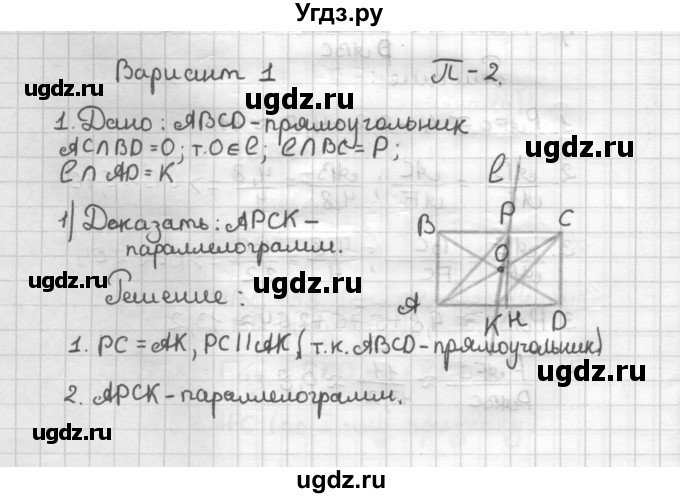 Угдз.ру
Вариант 1 П-2.
ugdz.ru
1. Дано: ABCD-прямоугольник
AC∩BD=O; т.O∈ℓ; ℓ∩BC=P;
ugdz.ru
ℓ∩AD=K
ℓ
1) Доказать: APCK-
параллелограмм.
P
B C
O
ugdz.ru ugdz.ru
Решение:
A K H D
1. PC=AK, PC||AK, (т.к. ABCD-прямоугольник)
ugdz.ru
2. APCK-параллелограмм.
ugdz.ru
ugdz.ru